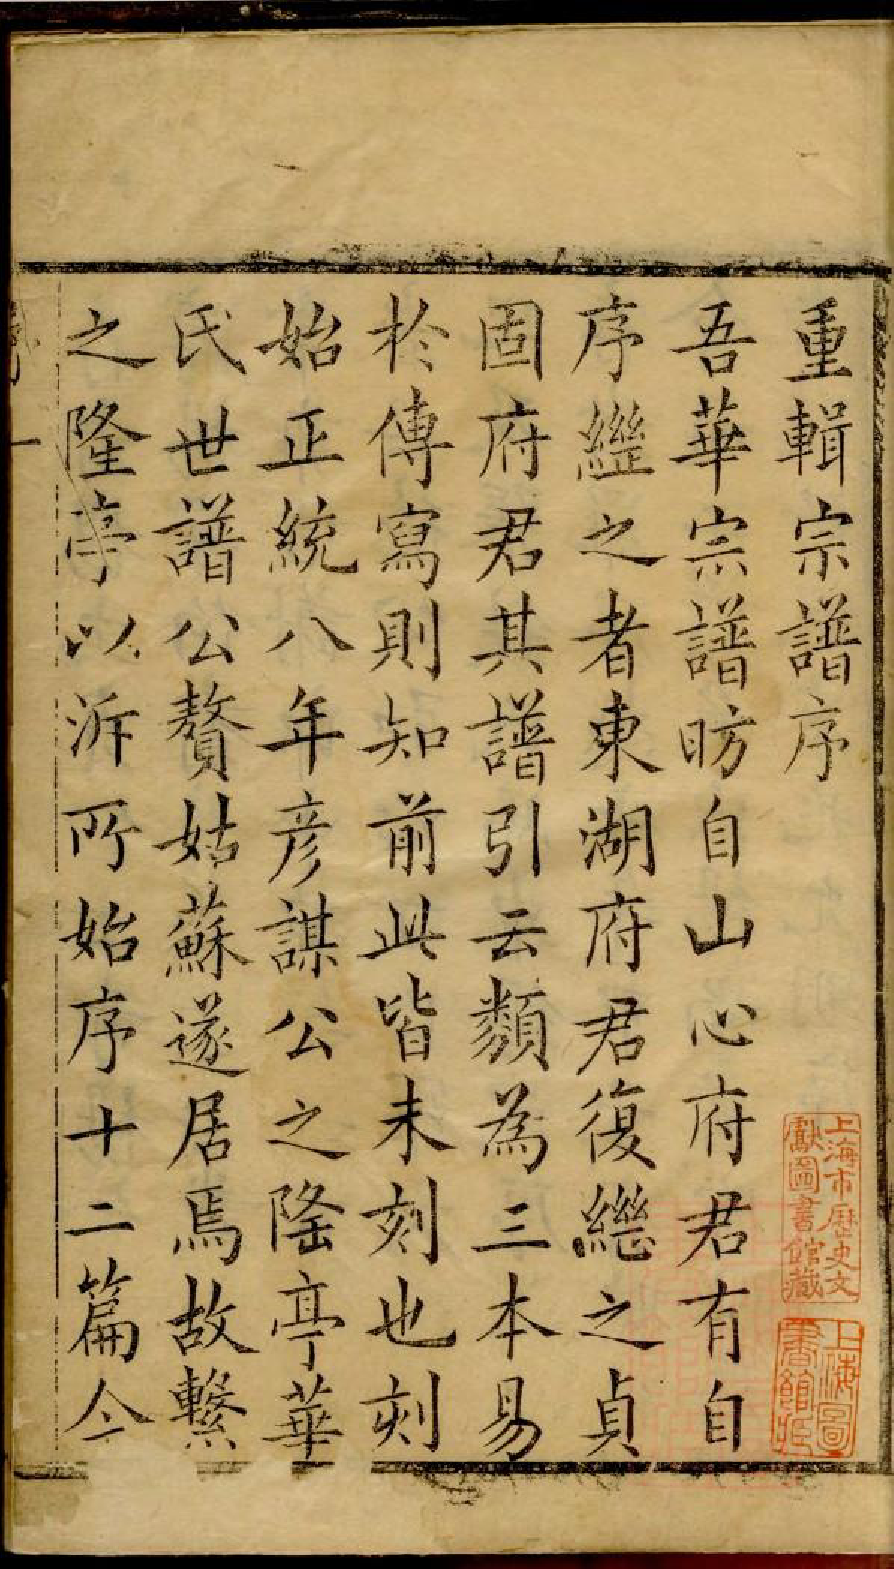 重輯宗譜序
吾華宗譜昉自山心府君有自
序繼之者東湖府君復繼之貞
固府君其譜引云類為三本易
於傳寫則知前此皆未刻也刻
始正統八年彦謀公之隆亭華
氏世譜公贅姑蘇遂居焉故繫
之隆亭以泝所始序十二篇今
一
上海市歷史文
獻圖書館藏
上海圖
書館藏